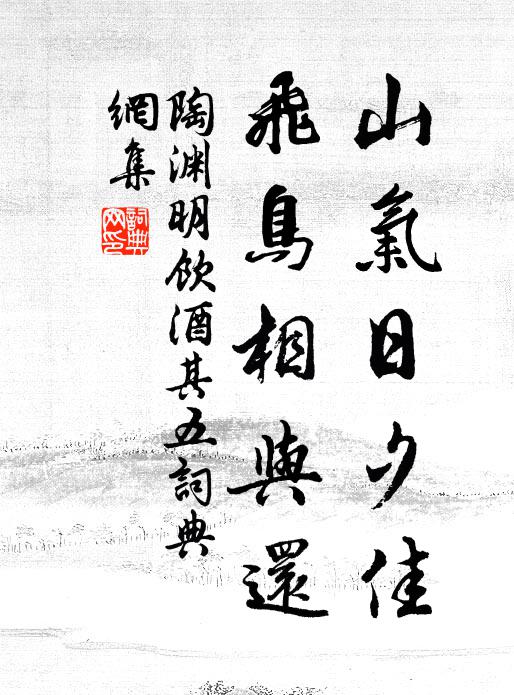 山氣日夕佳
飛鳥相與還
陶渊明飲酒其五詞典
網集
詞典
网印